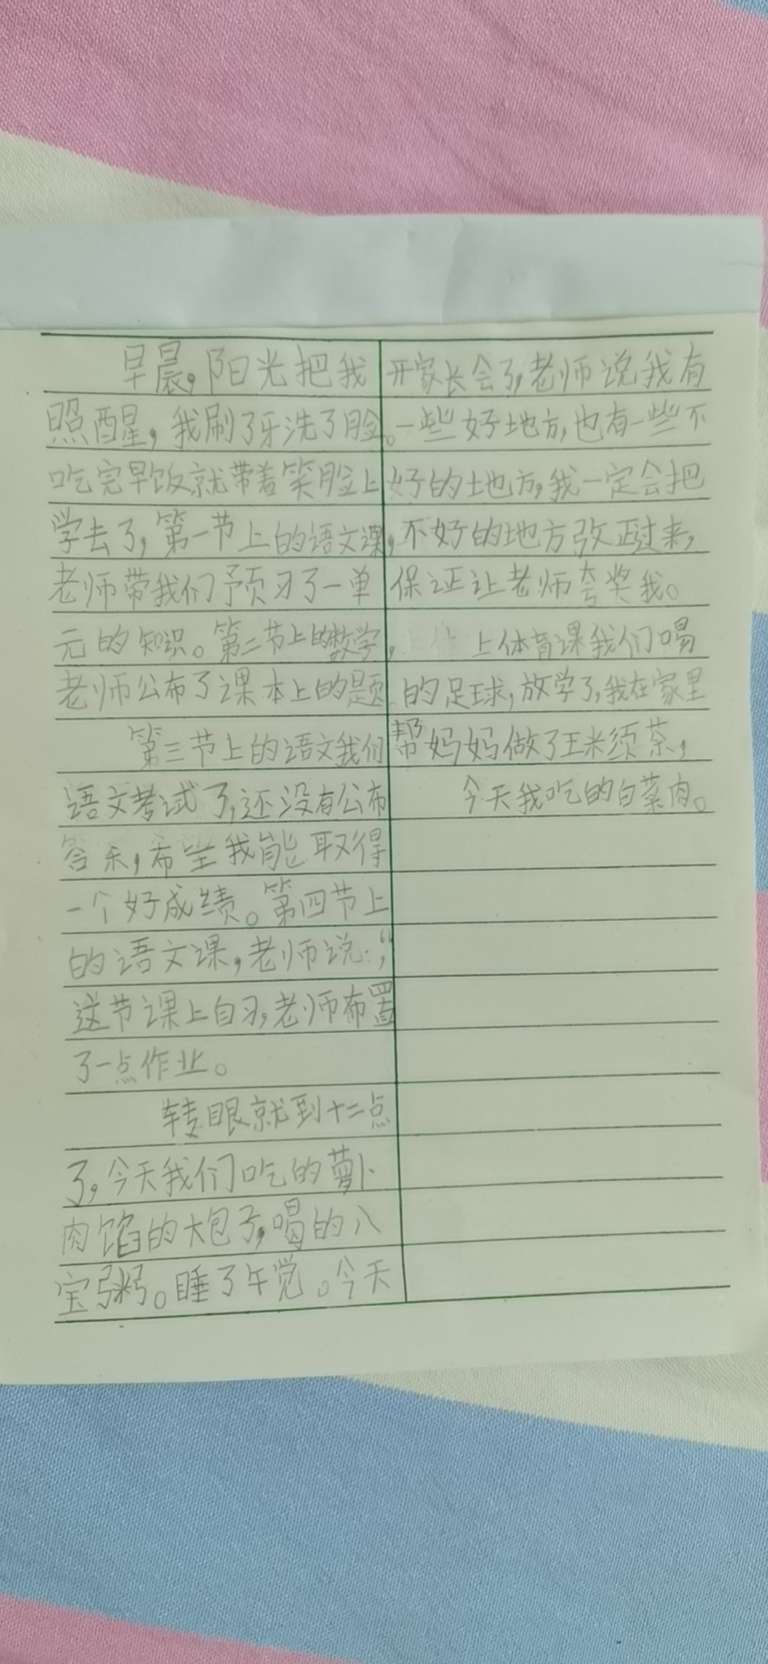 早晨,阳光把我
照醒,我刷了牙洗了脸。
吃完早饭就带着笑脸上
学去了,第一节上的语文课,
老师带我们预习了一单
元的知识。第二节上的数学,
老师公布了课本上的题
第三节上的语文我们
语文考试了,还没有公布
答案,希望我能取得
一个好成绩。第四节上
的语文课,老师说:“
这节课上自习,老师布置
了一点作业。
转眼就到十二点
了,今天我们吃的萝卜
肉馅的大包子,喝的八
宝粥。睡了午觉。今天
开家长会了,老师说我有
一些好地方,也有一些不
好的地方,我一定会把
不好的地方改正过来,
保证让老师夸奖我。
上体育课我们喝
的足球,放学了,我在家里
帮妈妈做了玉米须茶,
今天我吃的白菜肉。